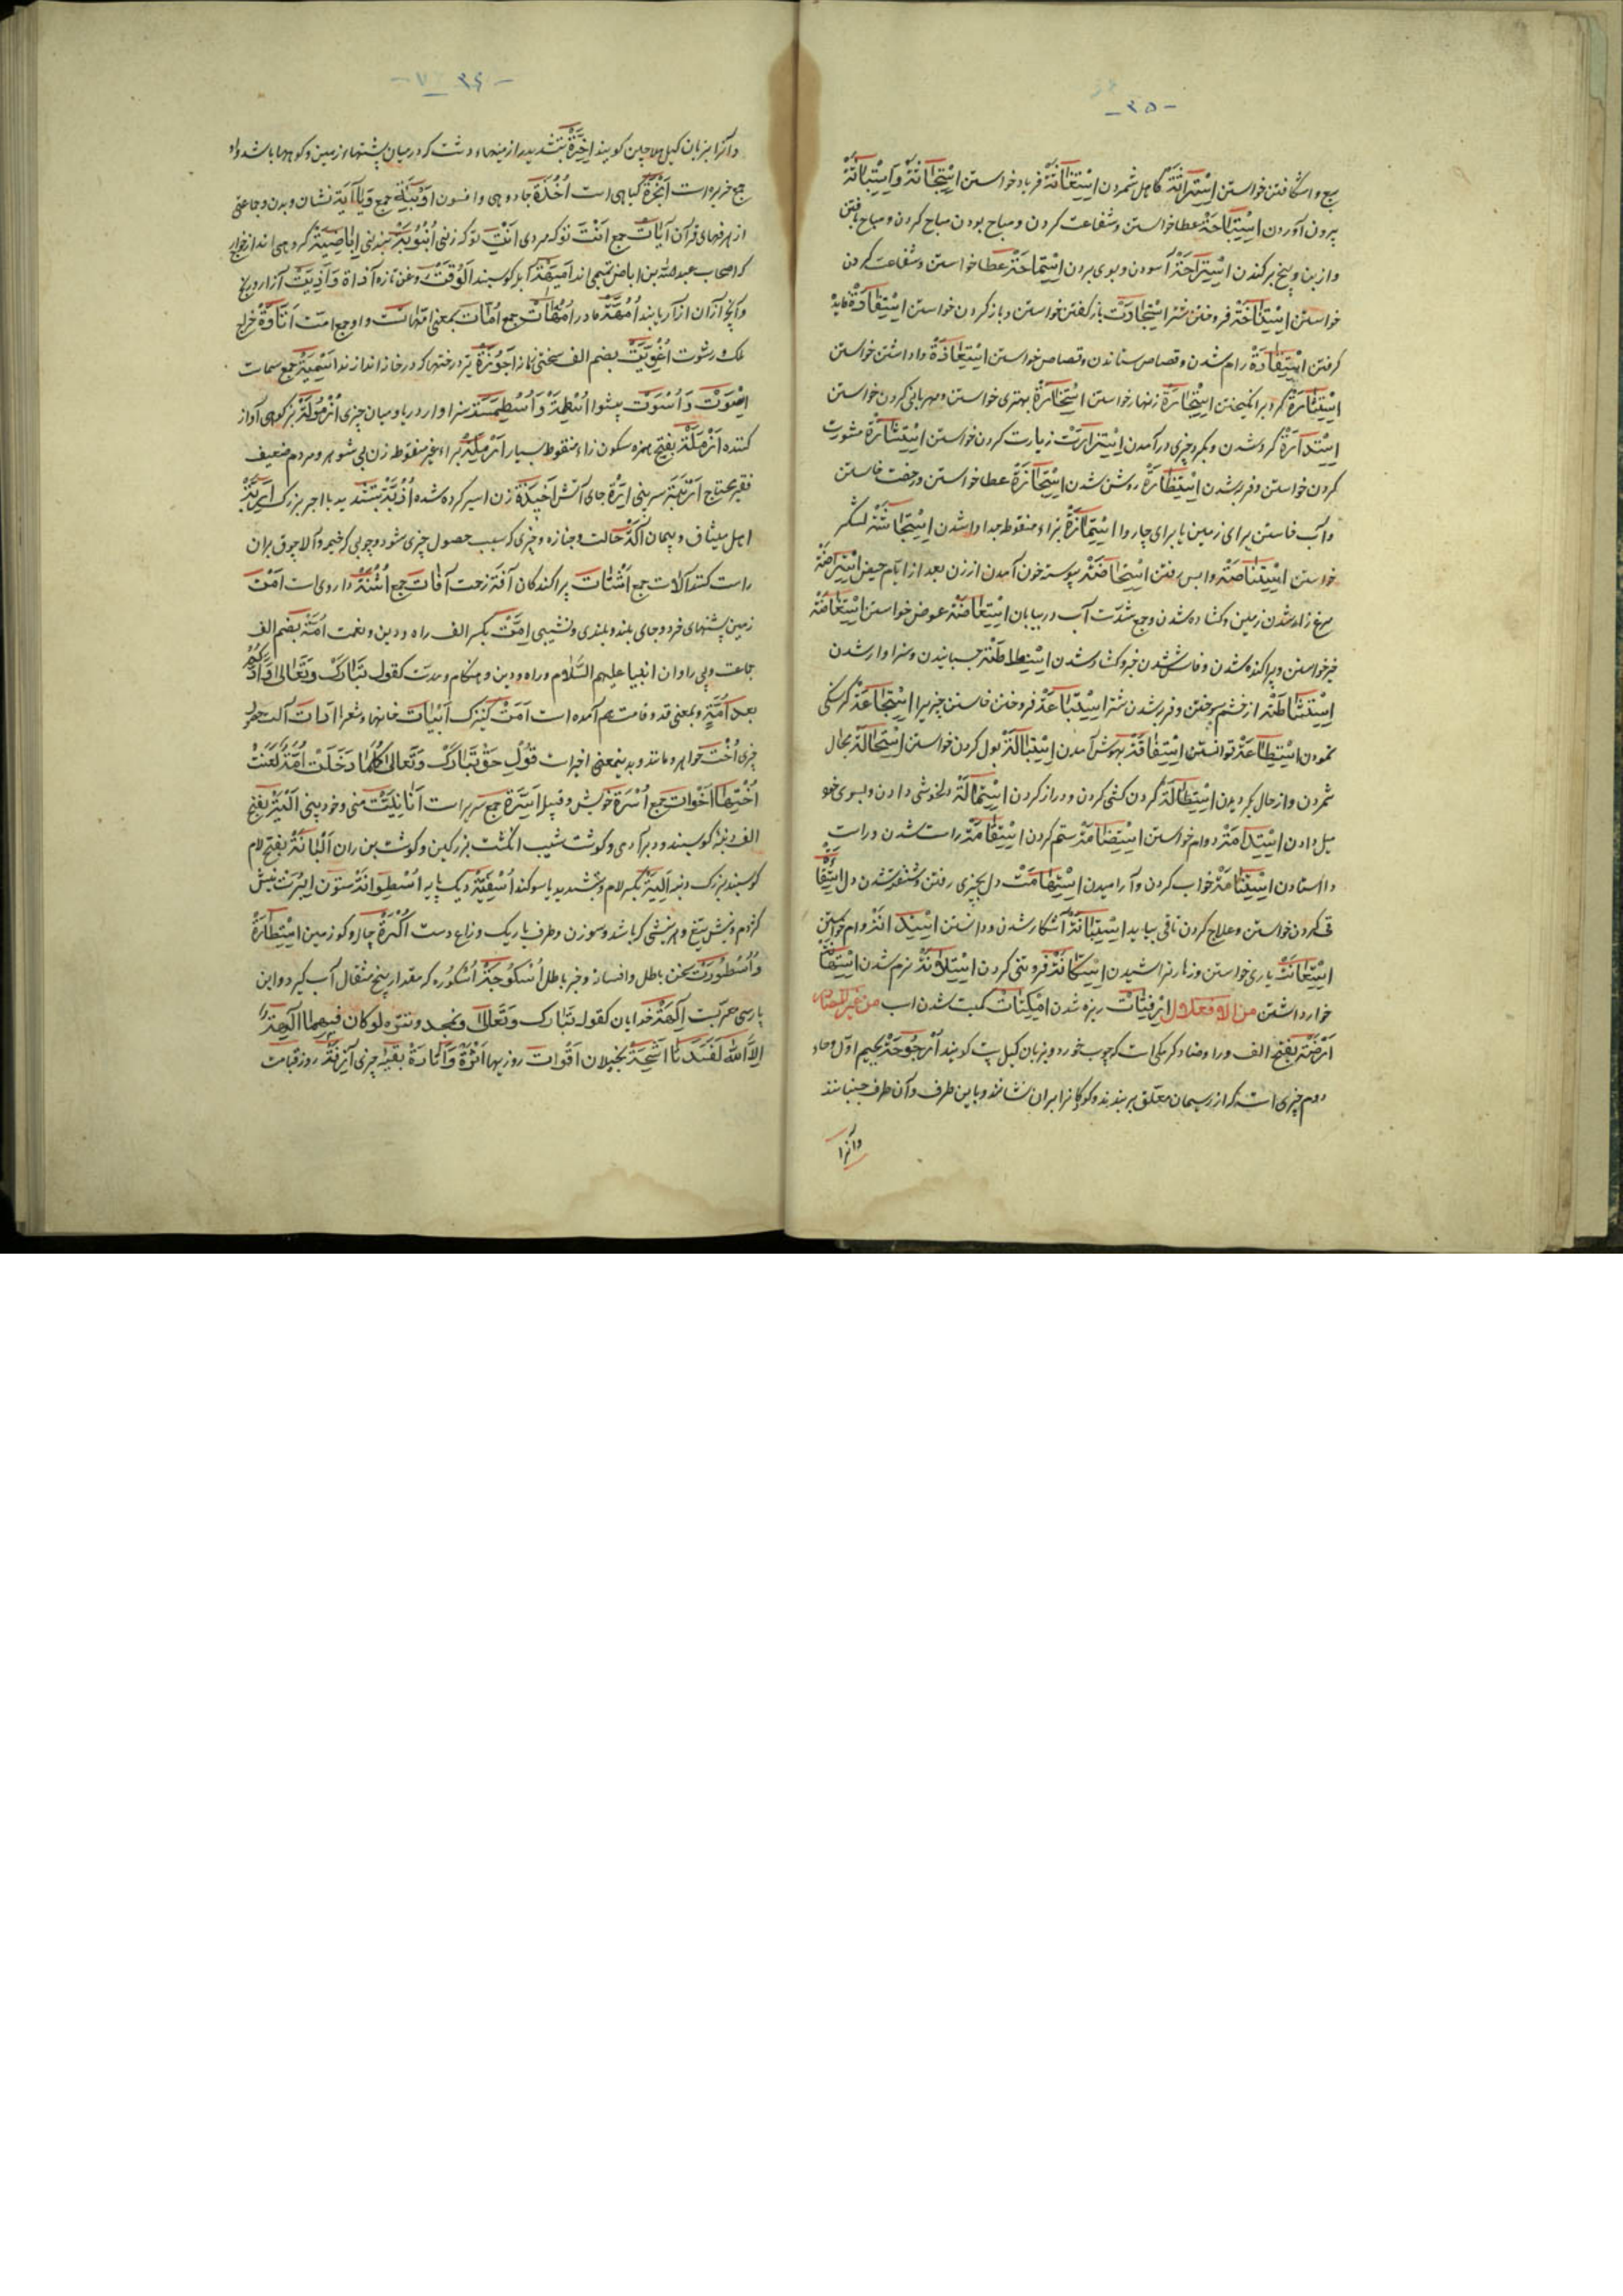 -۳۵-
بیع و اشکافتن خواستن اِسْتِرَاثَةْ کاهل شمردن اِسْتِغَاثَةْ فریاد خواستن
بیرون آوردن اِسْتِبَاحَةْ عطا خواستن و شفاعت کردن و مباح بودن مباح کردن و مباح یافتن
و از بن و بیخ برکندن اِسْتِرَاحَةْ آسودن و بوی بردن اِسْتِمَاحَةْ عطا خواستن و شفاعت کردن
خواستن اِسْتِنَاخَةْ فروختن شتر اِسْتِجَادَتْ باز گفتن خواستن و باز کردن خواستن اِسْتِفَادَةْ فایده
گرفتن اِسْتِقَادَةْ رام شدن و قصاص ستاندن و قصاص خواستن اِسْتِعَاذَةْ واداشتن خواستن
اِسْتِثَارَةْ گرد برانگیختن اِسْتِجَارَةْ زنهار خواستن اِسْتِخَارَةْ بهتری خواستن و مهربانی کردن خواستن
اِسْتِدَارَةْ گرد شدن و بگرد چیزی درآمدن اِسْتِزَارَتْ زیارت کردن خواستن اِسْتِشَارَةْ مشورت
کردن خواستن و فربه شدن اِسْتِطَارَةْ روشن شدن اِسْتِجَازَةْ عطا خواستن و رخصت خاستن
و آب خاستن برای زمین یا برای چاروا اِسْتِمَازَةْ بزاء منقوط جدا وا شدن اِسْتِجَاشَةْ لشکر
خواستن اِسْتِنَاصَةْ واپس رفتن اِسْتِحَاضَةْ پیوسته خون آمدن از زن بعد از ایام حیض اِسْتِرَاضَةْ
مرغ زار شدن زمین و کشاده شدن و جمع شدن آب در بیابان اِسْتِعَاضَةْ عوض خواستن اِسْتِفَاضَةْ
خبر خواستن و پراکنده شدن و فاش شدن خبر و کشاد شدن اِسْتِلَاطَةْ چسبانیدن و سزاوار شدن
اِسْتِشَاطَةْ از خشم سوختن و فربه شدن شتر اِسْتِبَاعَةْ فروختن خاستن چیزیرا اِسْتِجَاعَةْ گرسنگی
نمودن اِسْتِطَاعَةْ توانستن اِسْتِفَاقَةْ بهوش آمدن اِسْتِبَالَةْ بول کردن خواستن اِسْتِحَالَةْ محال
شمردن و از حال بگردیدن اِسْتِطَالَةْ گردن کشی کردن و دراز کردن اِسْتِمَالَةْ دلخوشی دادن و بسوی خود
میل دادن اِسْتِدَامَةْ دوام خواستن اِسْتِضَامَةْ ستم کردن اِسْتِقَامَةْ راست شدن و راست
وا استادن اِسْتِنَامَةْ خواب کردن و آرامیدن اِسْتِهَامَتْ دل بچیزی رفتن و شیفته شدن دل
قی کردن خواستن و علاج کردن تا قی بیاید اِسْتِبَانَةْ آشکار شدن و دانستن اِسْتِدَانَةْ وام خواستن
اِسْتِعَانَتْ یاری خواستن و زهار تراشیدن اِسْتِکَانَةْ فروتنی کردن اِسْتِلَانَةْ نرم شدن
خوار داشتن من الافعلال اِرْفِتَاتْ ریزه شدن اِکْمِتَاتْ کمیت شدن اسب من غیر المصادر
اَرَضَةْ بفتح الف و را و ضاد کرمکی است که چوب خورد و بزبان کیل پت کویند اُرْجُوحَةْ بجیم اوّل و حاء
دوم چیزی است که از ریسمان معلّق بربندند و کودکانرا بران نشانند و باین طرف و آن طرف جنبانند
وآنرا
-۳۶-
وآنرا بزبان کیل هلاچین کویند اَخِرَّةْ بتشدید را زمینهاء دشت که در میان پشتهاء زمین و کوهها باشد و او
جمع خریر است اَنْجُرَةْ کیاهی است اُخْذَةْ جادوهی و افسون اَوْبِیَةْ جمع آیَةْ نشان و بدن و جماعتی
از حرفهای قرآن آیَاتْ جمع اَنْتَ تو که مردی اَنْتِ تو که زنی اُنْبُوبَةْ بند نی اِبَاضِیَةْ گروهی اند از خوارج
که اصحاب عبد الله بن اباض تمیمی اند اَلُوقَةْ روغن تازه اَذَاةْ وَ اَذِیَّتْ آزار و رنج
و آنچه از آن آزار یابند اُمَّهَةْ مادر اُمَّهَاتْ جمع اُمَّاتْ بمعنی امّهاتست و او جمع امّت اَتَاوَةْ خراج
ملک و رشوت بضم الف سختی
اِسْوَتْ وَ اُسْوَتْ پیشوا اُسْطُمَّةْ سزاوار و دریا و میان چیزی اُزْمُولَةْ بزکوهی آواز
کننده اَزْمَلَةْ بفتح همزه سکون زاء منقوط بسیار اَرْمَلَةْ براء غیر منقوط زن بی شوهر و مردم ضعیف
فقیر محتاج اَرْنَبَةْ سر بینی اِرَةْ جای آتش اَخِیذَةْ زن اسیر کرده شده
اهل میثاق و پیمان آلَةْ حالت و جنازه و چیزی که سبب حصول چیزی شود و چوبی که خیمه و آلاجوق بران
راست کنند آلات جمع اَشْتَاتْ پراکندکان آفَةْ زحمت آفَاتْ جمع اُشْنَةْ داروی است اَمْتْ
زمین پشتهای خرد و جای بلند و بلندی و نشیبی اِمَّتْ بکسر الف راه و دین و نعمت اُمَّةْ بضم الف
جماعت و پی راوان انبیا علیهم السّلام و راه و دین و هنکام و مدّت کقوله تَبَارَکَ وَ تَعَالٰی وَادَّکَرَ
بَعْدَ اُمَّةٍ و بمعنی قد و قامت هم آمده است اَمَتْ کنیزک اَبْیَاتْ خانها و شعرا اَدَاتْ آلت
چیزی اُخْتْ خواهر و مانند و بدینمعنی اخیر است قَوْلِ حَقّ تَبَارَکَ وَ تَعَالٰی کُلَّمَا دَخَلَتْ اُمَّةٌ لَعَنَتْ
اُخْتَهَا اَخَوَاتْ جمع اُسْرَةْ خویش و قبیله اَسِرَّةْ جمع سریر است اَنَانِیَّتْ منی و خودبینی اَلْیَةْ بفتح
الف دنبه کوسپند و دبر آدمی و کوشت شیب انکشت بزرکین و کوشت بن ران اَلْیَانَةْ بفتح لام
کوسپند بزرک دنبه اَلِیَّةْ بکسر لام و تشدید یا سوکند اُثْفِیَّةْ دیک پایه اُسْطُوَانَةْ ستون اِبْرَتْ نیش
کژدم و نیش تیغ و هر نیشی که باشد و سوزن و طرف باریک و زراع دست اُکْرَةْ چال و کو زمین
وَ اُسْطُورَتْ سخن باطل و افسانه و خبر باطل اُسْکُرُّجَةْ اسکوره که مقدار پنج مثقال آب گیرد و این
پارسی معرّبست آلِهَةْ خدایان کقوله تَبَارَکَ وَ تَعَالٰی و تمجد و تنزّه لَوْ کَانَ فِیهِمَا آلِهَةٌ
اِلَّا اللّٰهُ لَفَسَدَتَا اَشِحَّةْ بخیلان اَقْوَاتْ روزیها اَثَرَةْ وَ اَثَارَةْ بقیه چیزی آزِفَةْ روز قیامت